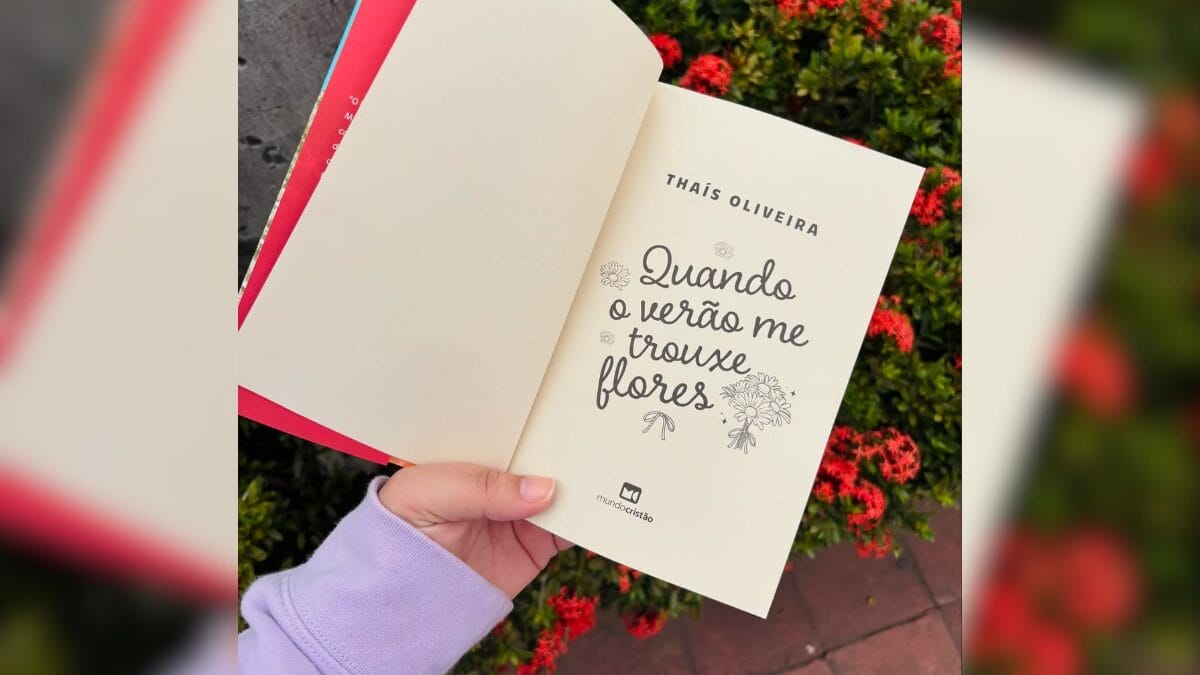 "O
THAÍS OLIVEIRA
Quando
o verão me
trouxe
flores
mundocristão